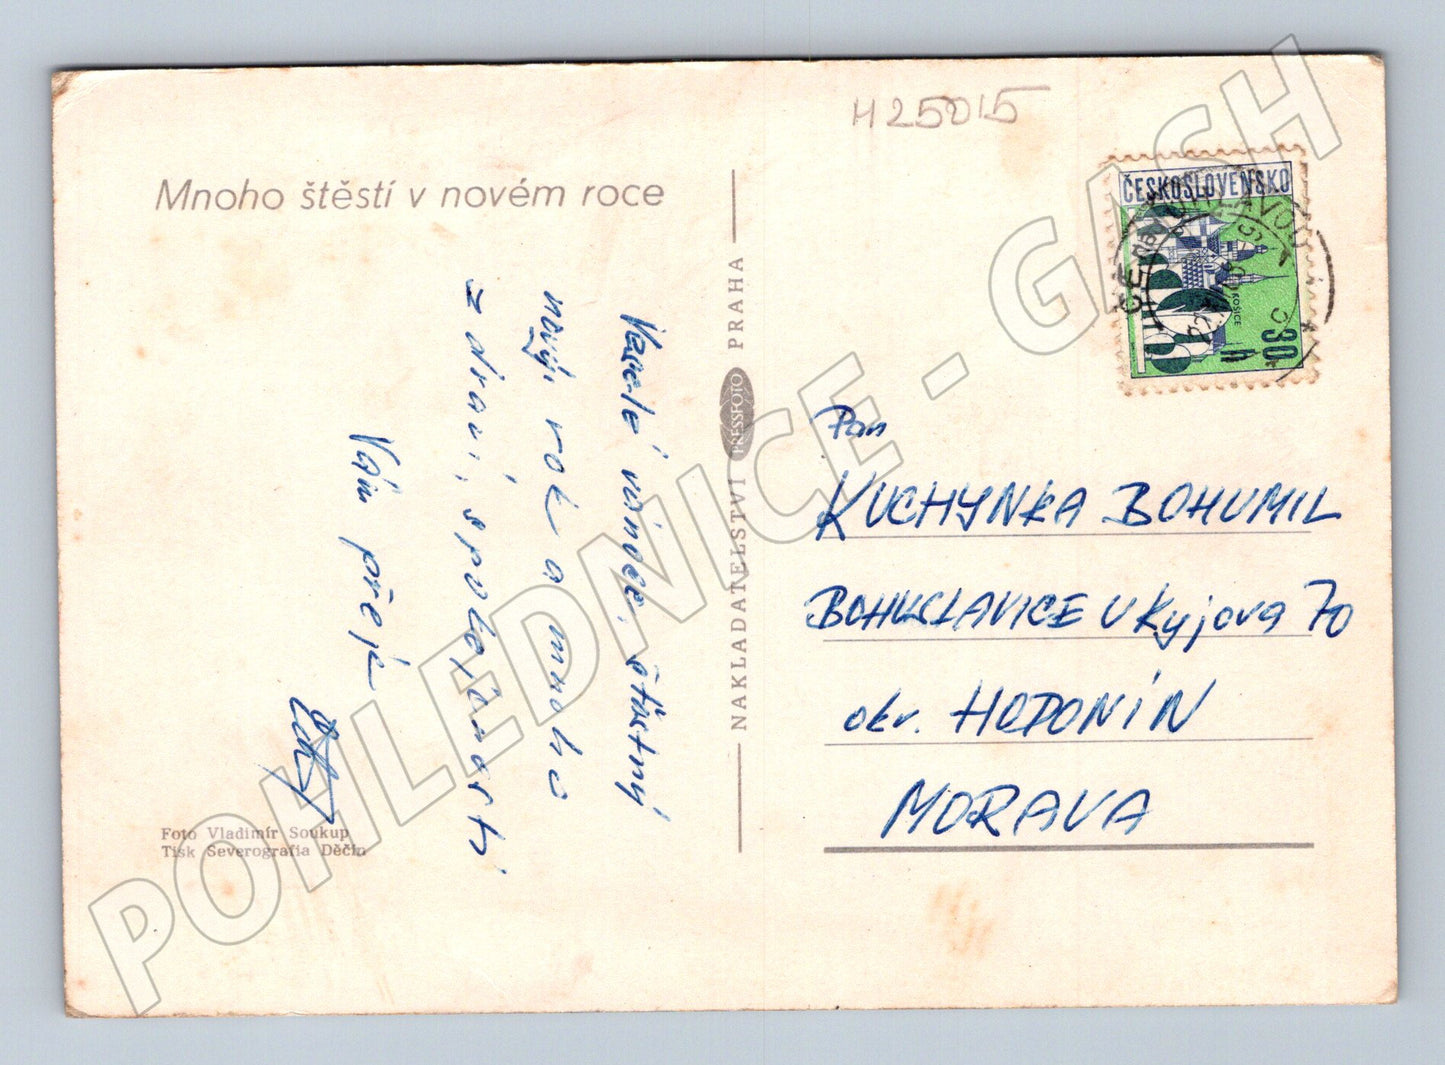 H25015
Mnoho štěstí v novém roce
Veselé vánoce, šťastný
nový rok a mnoho
zdraví, spokojenosti
Vám přeje
Foto Vladimír Soukup
Tisk Severografia Děčín
NAKLADATELSTVÍ PRESSFOTO PRAHA
ČESKOSLOVENSKO
KOŠICE
30 h
Pan
KUCHYNKA BOHUMIL
BOHUSLAVICE u Kyjova 70
okr. HODONÍN
MORAVA
POHLEDNICE - GASH